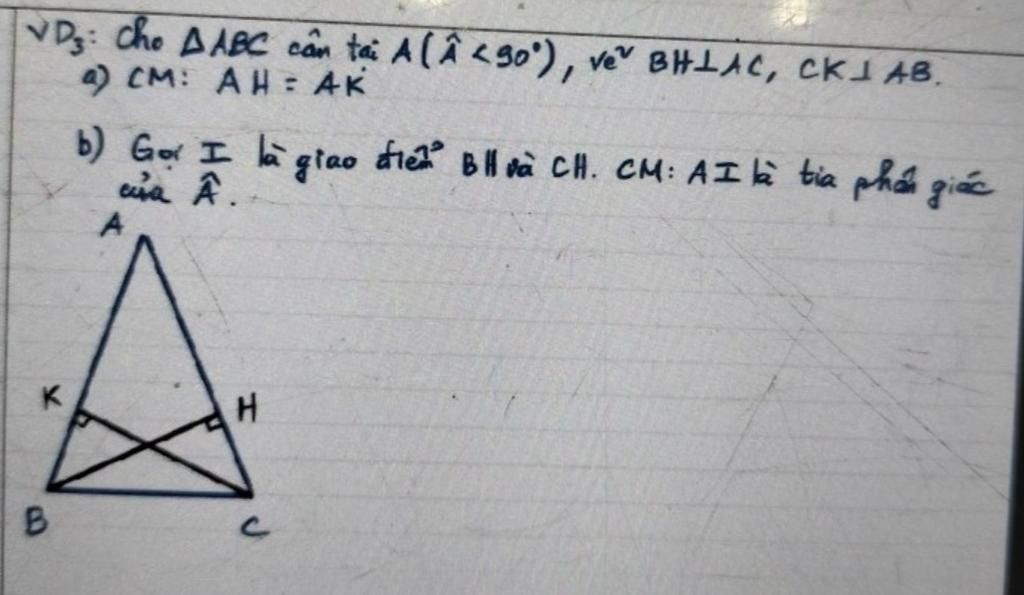 VD₃: Cho ΔABC cân tại A (Â < 90°), vẽ BH⊥AC, CK⊥AB.
a) CM: AH = AK
b) Gọi I là giao điểm BH và CH. CM: AI là tia phân giác
của Â.
A
K
H
B
C